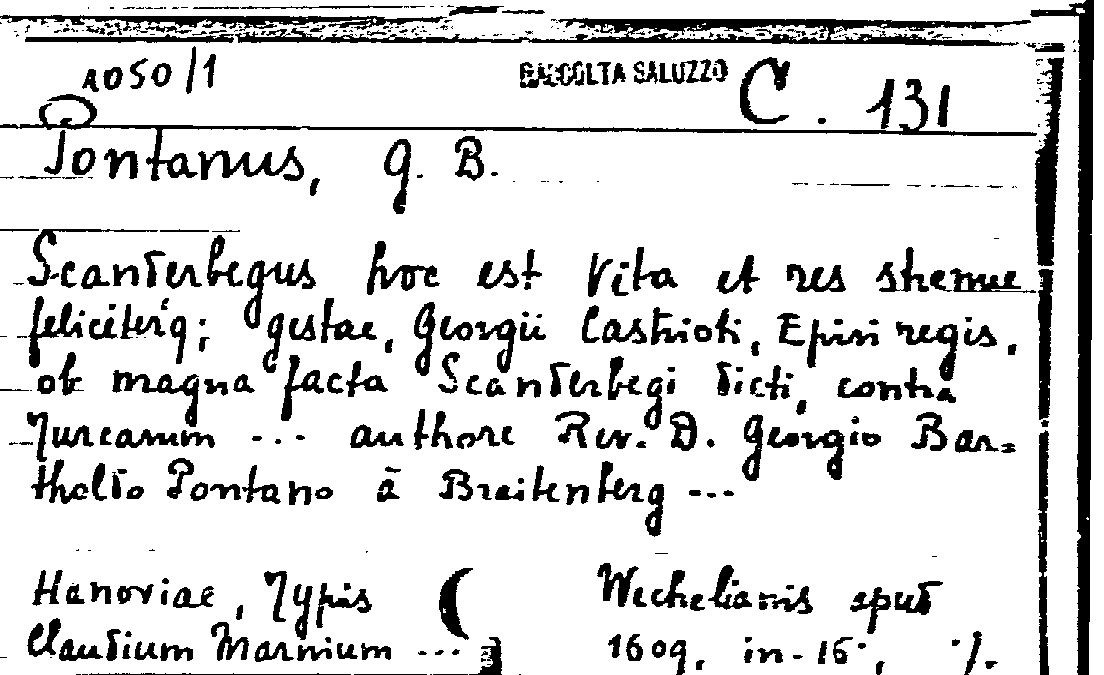 1050/1 RACCOLTA SALUZZO C. 131
Pontanus, G. B.
Scanderbegus hoc est Vita et res strenue
feliciterq; gestae, Georgii Castrioti, Epiri regis,
ob magna facta Scanderbegi dicti, contra
Turcarum ... authore Rev. D. Georgio Bar=
tholdo Pontano ā Braitenberg ...
Hanoviae, Typis Wechelianis apud
Claudium Marnium ... 1609, in-16°,